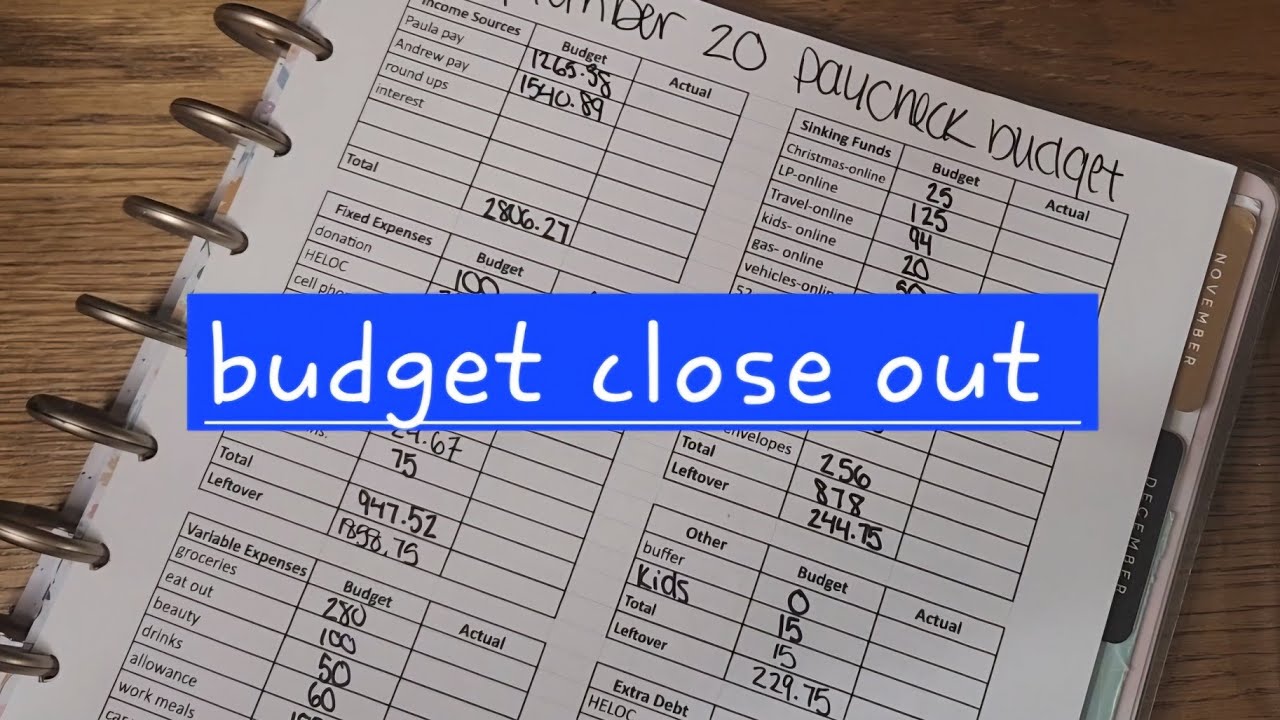 20 paycheck budget
Income Sources Budget Actual
Paula pay 1265.38
Andrew pay 1540.89
round ups
interest
Total 2806.27
Fixed Expenses Budget
donation 100
HELOC
cell
75
Total 947.52
Leftover 1858.75
Variable Expenses Budget Actual
groceries 280
eat out 100
beauty 50
drinks 60
allowance
work meals
Sinking Funds Budget Actual
Christmas-online 25
LP-online 125
Travel-online 94
kids- online 20
gas- online
vehicles-online
budget close out
envelopes 256
Total 878
Leftover 244.75
Other Budget Actual
buffer 0
Kids 15
Total 15
Leftover 229.75
Extra Debt
HELOC
NOVEMBER
DECEMBER